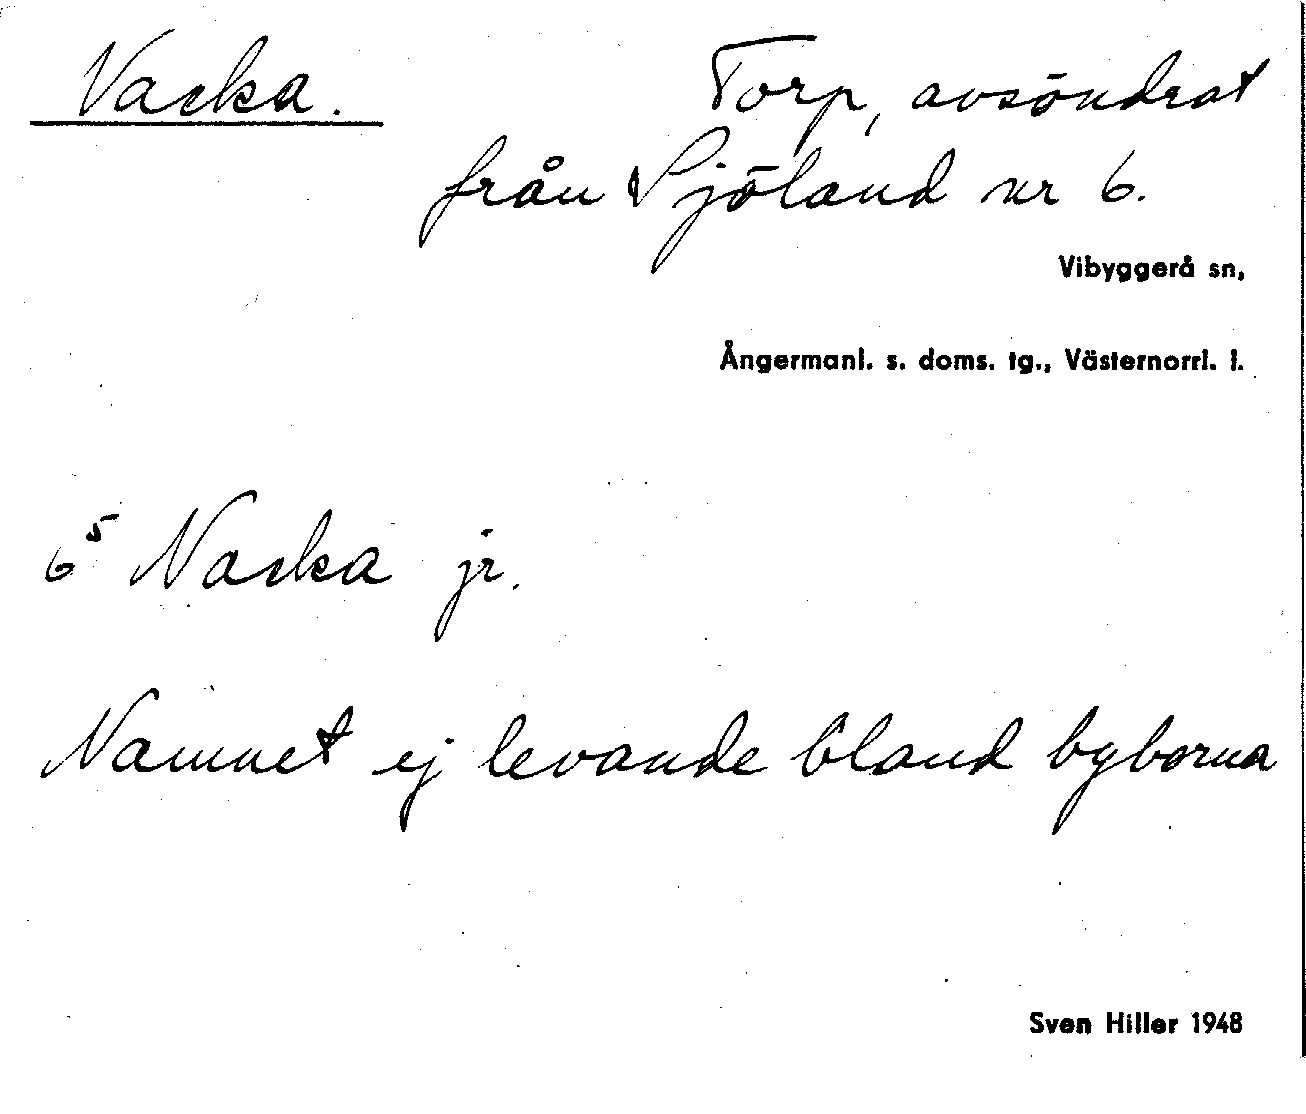 Nacka. Torp, avsöndrat
från Sjöland nr 6.
Vibyggerå sn,
Ångermanl. s. doms. tg., Västernorrl. l.
6⁵ Nacka jr.
Namnet ej levande bland byborna
Sven Hiller 1948